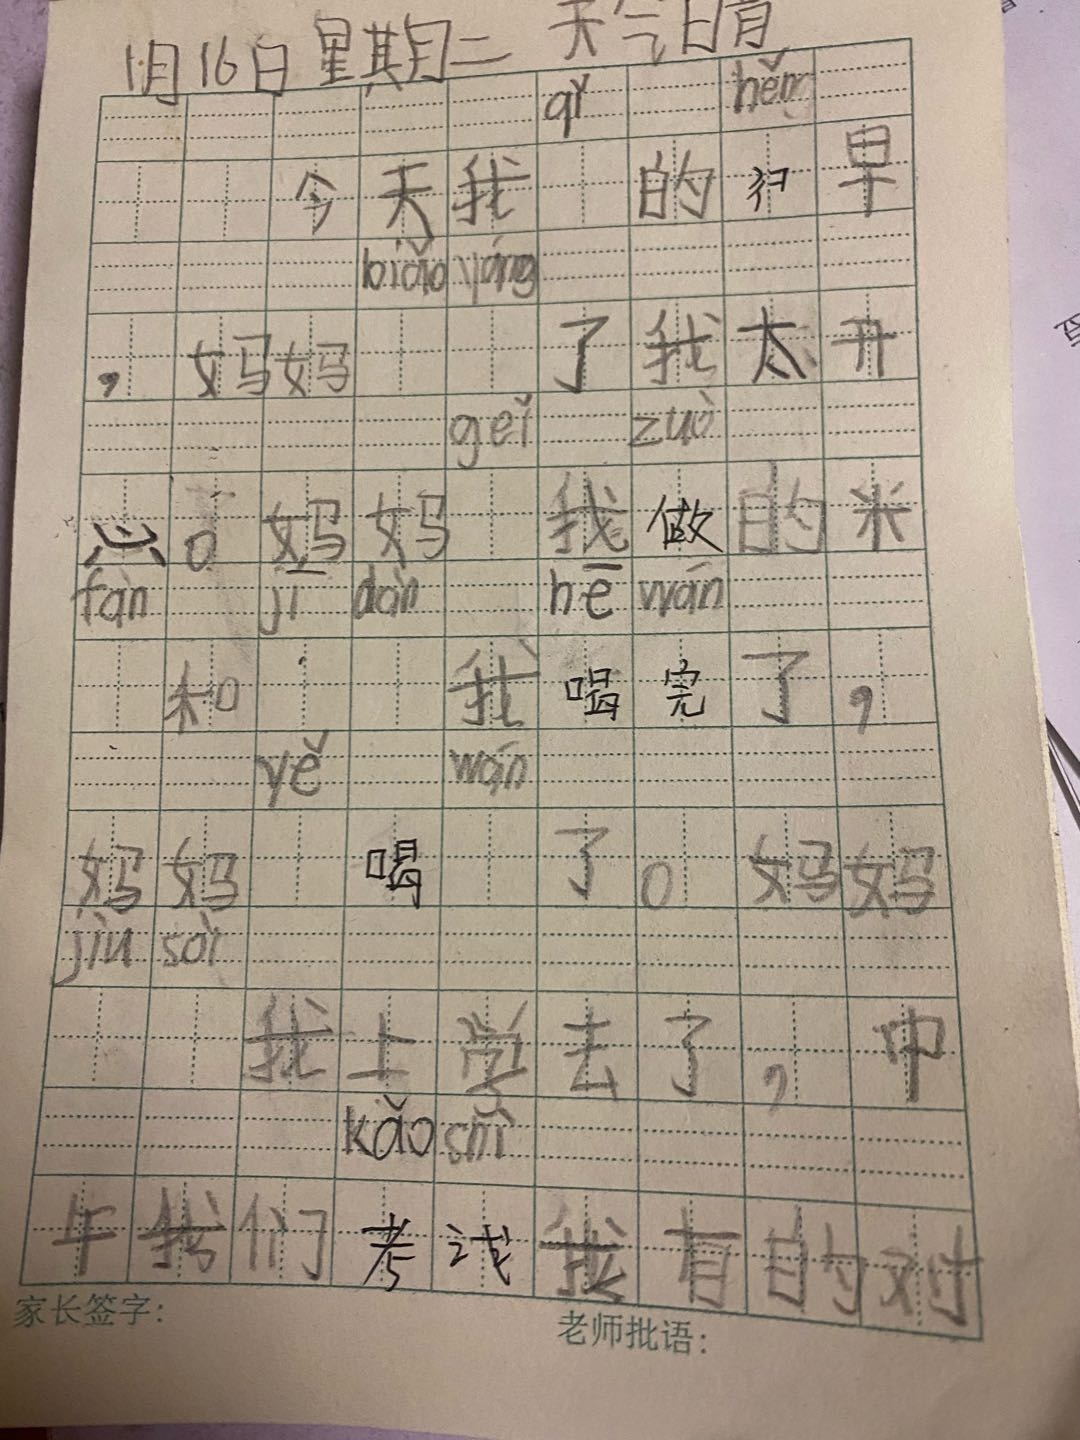 1月16日 星期二 天气晴
qǐ hěn
今天我 的 早
biǎo yáng
，妈妈 了我太开
gěi zuò
。妈妈 我做的米
fàn jī dàn hē wán
和 我喝完了，
yě wán
妈妈 喝 了。妈妈
jiù sòi
我上学去了，中
kǎo shì
午我们考试我有的对
家长签字:
老师批语: